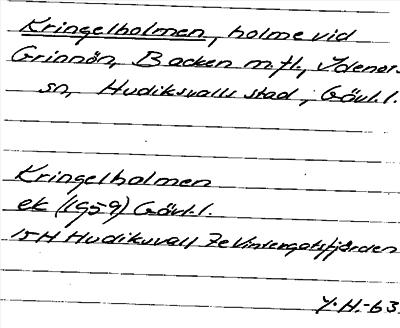 Kringelholmen, holme vid
Grinnön, Backen m.fl., Idenors
sn, Hudiksvalls stad, Gävl.l.
Kringelholmen
ek (1959) Gävl.l.
15H Hudiksvall 7e Vintergatsfjärden
Y.H.-63